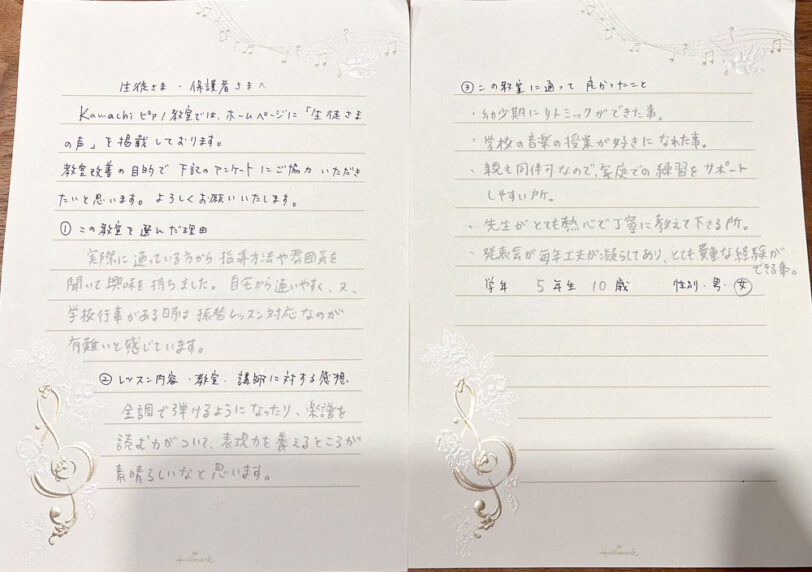 生徒さま・保護者さまへ
Kamachiピアノ教室では、ホームページに「生徒さま
の声」を掲載しております。
教室改善の目的で下記のアンケートにご協力いただき
たいと思います。よろしくお願いいたします。
①この教室を選んだ理由
実際に通っている方から指導方法や雰囲気を
聞いて興味を持ちました。自宅から通いやすく、又、
学校行事がある時は振替レッスン対応なのが
有難いと感じています。
②レッスン内容・教室・講師に対する感想、
全調で弾けるようになったり、楽譜を
読む力がついて、表現力を養えるところが
素晴らしいなと思います。
Hallmark
③この教室に通って良かったこと
・幼少期にリトミックができた事。
・学校の音楽の授業が好きになれた事。
・親も同伴可なので、家庭での練習をサポート
しやすい所。
・先生がとても熱心で丁寧に教えて下さる所。
・発表会が毎年工夫が凝らしてあり、とても貴重な経験が
できる事。
学年 5年生 10歳 性別・男・女
Hallmark